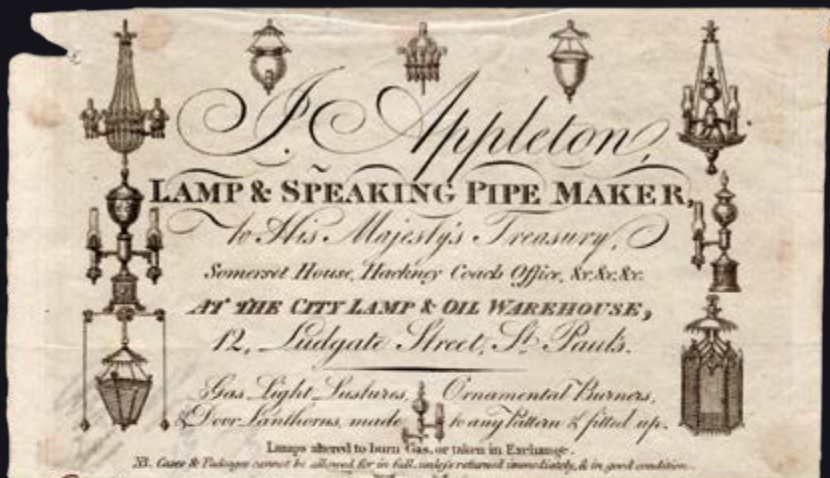 J. Appleton,
LAMP & SPEAKING PIPE MAKER,
to His Majesty's Treasury,
Somerset House, Hackney Coach Office, &c. &c. &c.
AT THE CITY LAMP & OIL WAREHOUSE,
12, Ludgate Street, St. Paul's.
Gas Light Lustures, Ornamental Burners,
& Door Lanthorns, made to any Pattern & fitted up.
Lamps altered to burn Gas, or taken in Exchange.
NB. Cases & Packages cannot be allowed for in full, unless returned immediately, & in good condition.